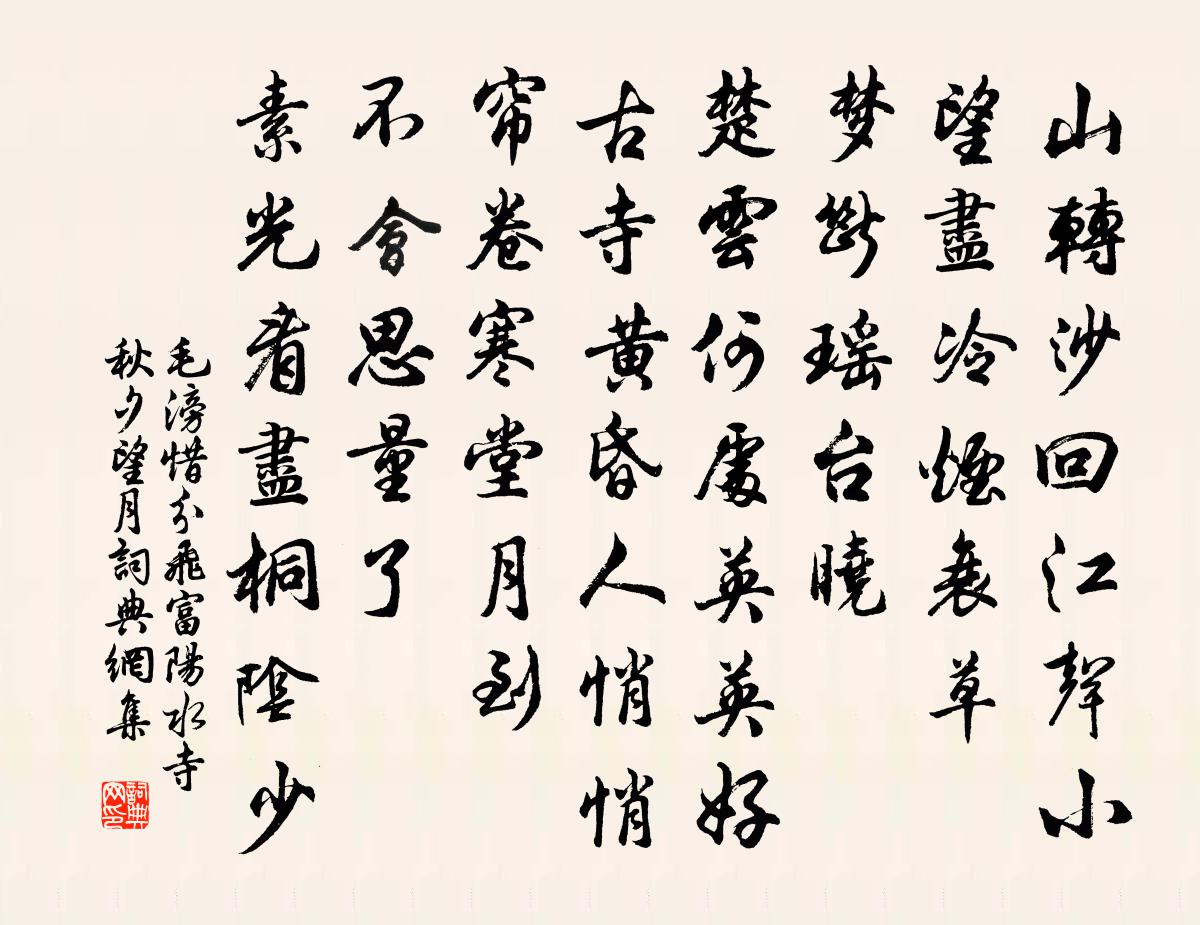 山轉沙回江聲小
望盡冷煙衰草
梦斷瑶台曉
楚雲何處英英好
古寺黄昏人悄悄
帘卷寒堂月到
不會思量了
素光看盡桐陰少
毛滂惜分飛富陽水寺
秋夕望月詞典網集
詞典网印